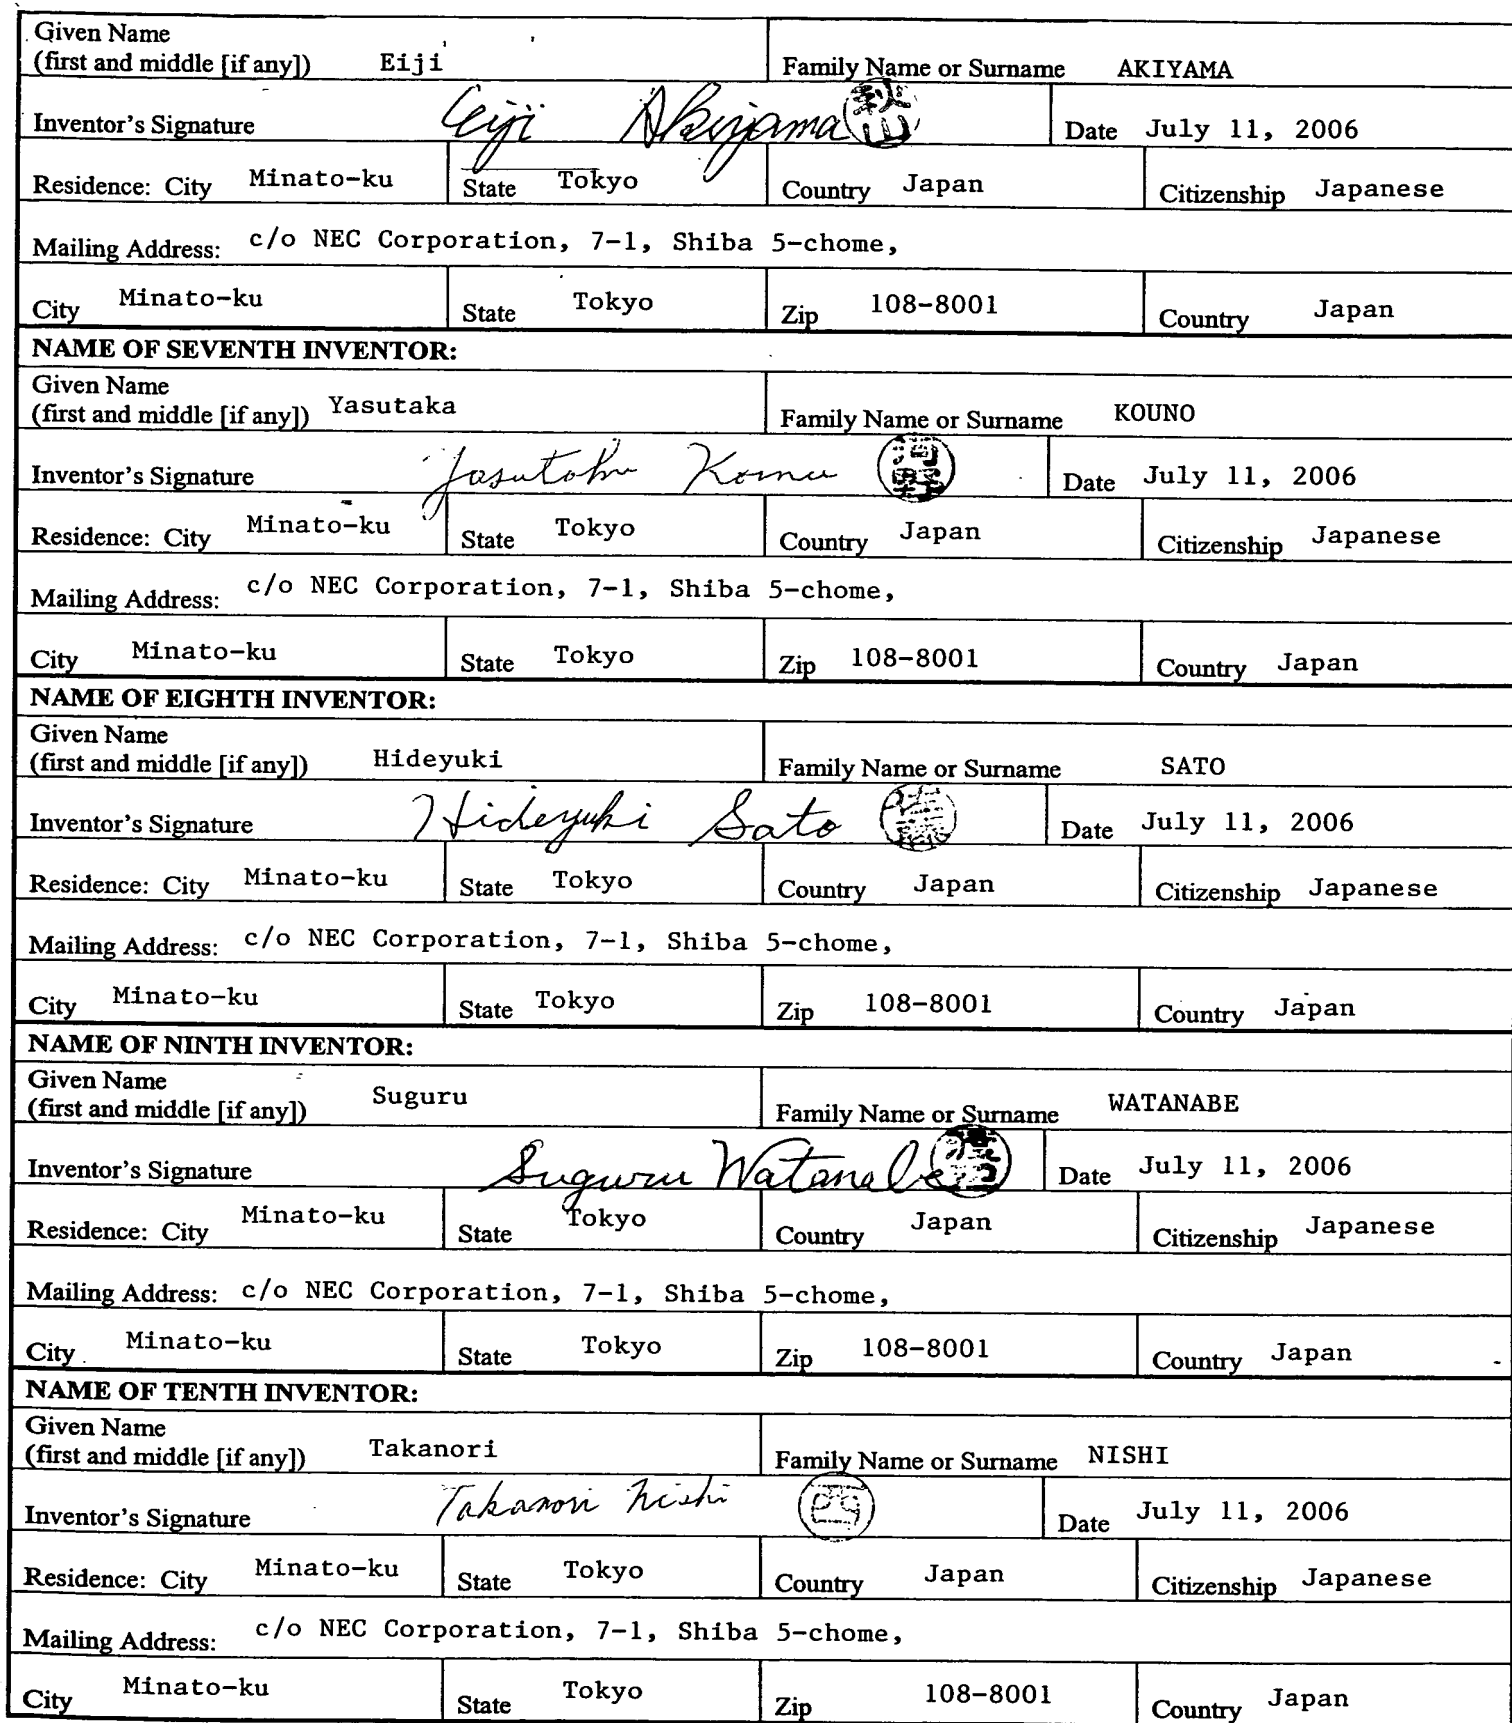 Given Name
(first and middle [if any]) Eiji Family Name or Surname AKIYAMA
Inventor's Signature Eiji Akiyama 秋山 Date July 11, 2006
Residence: City Minato-ku State Tokyo Country Japan Citizenship Japanese
Mailing Address: c/o NEC Corporation, 7-1, Shiba 5-chome,
City Minato-ku State Tokyo Zip 108-8001 Country Japan
NAME OF SEVENTH INVENTOR:
Given Name
(first and middle [if any]) Yasutaka Family Name or Surname KOUNO
Inventor's Signature Yasutaka Kouno 河野 Date July 11, 2006
Residence: City Minato-ku State Tokyo Country Japan Citizenship Japanese
Mailing Address: c/o NEC Corporation, 7-1, Shiba 5-chome,
City Minato-ku State Tokyo Zip 108-8001 Country Japan
NAME OF EIGHTH INVENTOR:
Given Name
(first and middle [if any]) Hideyuki Family Name or Surname SATO
Inventor's Signature Hideyuki Sato Date July 11, 2006
Residence: City Minato-ku State Tokyo Country Japan Citizenship Japanese
Mailing Address: c/o NEC Corporation, 7-1, Shiba 5-chome,
City Minato-ku State Tokyo Zip 108-8001 Country Japan
NAME OF NINTH INVENTOR:
Given Name
(first and middle [if any]) Suguru Family Name or Surname WATANABE
Inventor's Signature Suguru Watanabe Date July 11, 2006
Residence: City Minato-ku State Tokyo Country Japan Citizenship Japanese
Mailing Address: c/o NEC Corporation, 7-1, Shiba 5-chome,
City Minato-ku State Tokyo Zip 108-8001 Country Japan
NAME OF TENTH INVENTOR:
Given Name
(first and middle [if any]) Takanori Family Name or Surname NISHI
Inventor's Signature Takanori Nishi 西 Date July 11, 2006
Residence: City Minato-ku State Tokyo Country Japan Citizenship Japanese
Mailing Address: c/o NEC Corporation, 7-1, Shiba 5-chome,
City Minato-ku State Tokyo Zip 108-8001 Country Japan